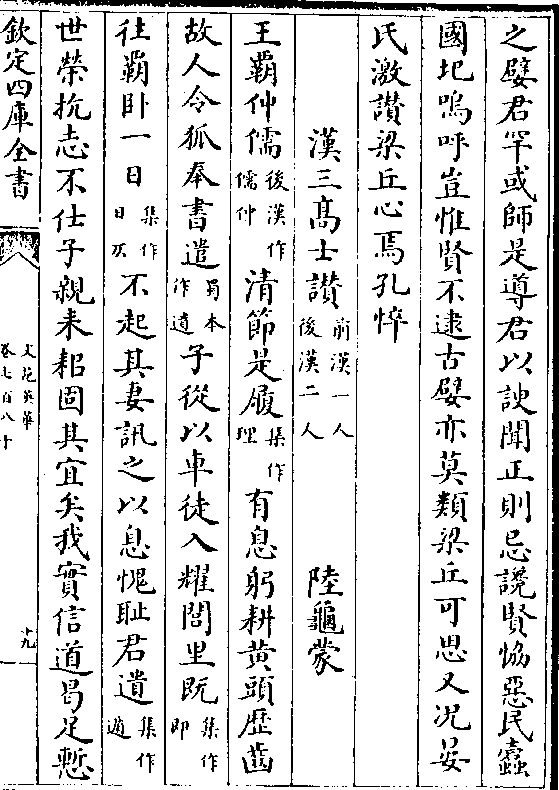 之嬖君罕或師是導君以諛聞正則忌讒賢恊惡民蠧
國圮嗚呼豈惟賢不逮古嬖亦莫類梁丘可思又况晏
氏激讃梁丘心焉孔悴
漢三髙士讃前漢一人後漢二人 陸龜蒙
王霸仲儒後漢作儒仲清節是履集作理有息躬耕黄頭歴齒
故人令狐奉書遣蜀本作遺子從以車徒入耀閭里既集作即
往霸卧一日集作日仄不起其妻訊之以息愧耻君遺集作遁
世榮抗志不仕子親耒耜固其宜矣我實信道曷足慙
欽定四庫全書
文苑英華
卷七百八十
十九